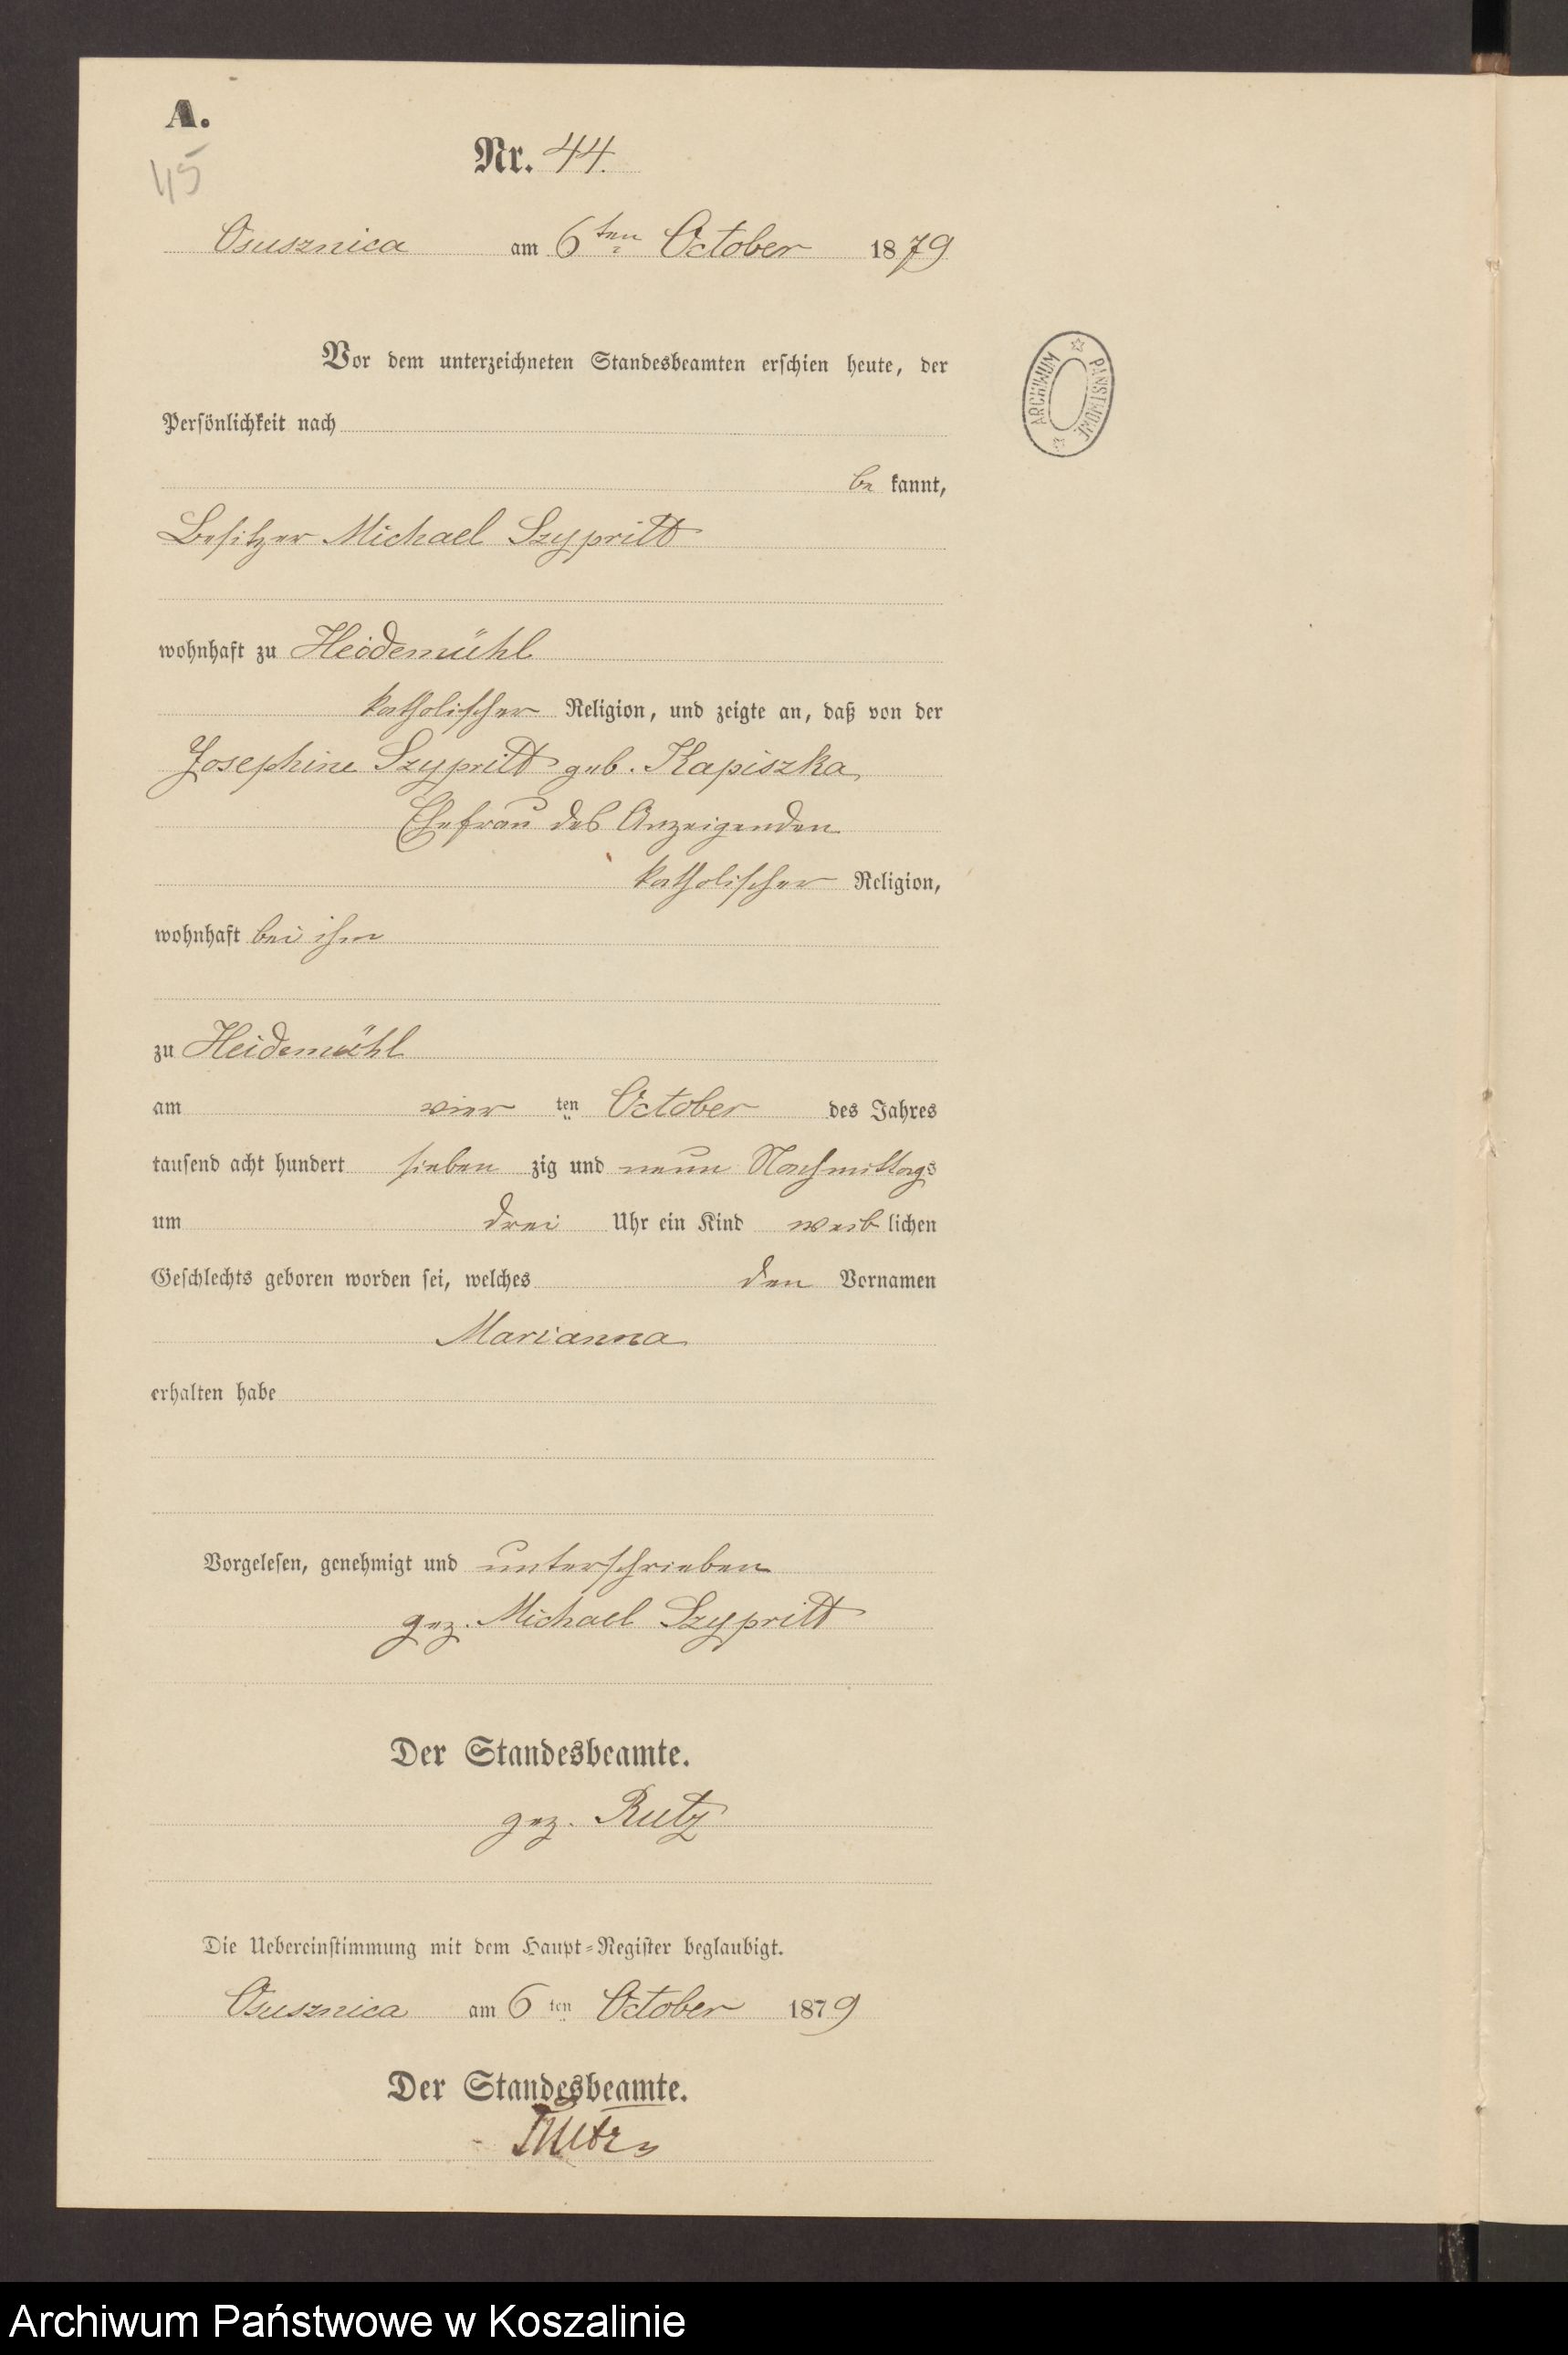 A.
45
Nr. 44.
Osusznica am 6ten October 1879
Vor dem unterzeichneten Standesbeamten erschien heute, der
Persönlichkeit nach
be kannt,
Besitzer Michael Szypritt
wohnhaft zu Heidemühl
katholischer Religion, und zeigte an, daß von der
Josephine Szypritt geb. Kapiszka
Ehefrau des Anzeigenden
katholischer Religion,
wohnhaft bei ihm
zu Heidemühl
am vier ten October des Jahres
tausend acht hundert sieben zig und neun Nachmittags
um drei Uhr ein Kind weib lichen
Geschlechts geboren worden sei, welches den Vornamen
Marianna
erhalten habe
Vorgelesen, genehmigt und unterschrieben
gez. Michael Szypritt
Der Standesbeamte.
gez. Rutz
Die Uebereinstimmung mit dem Haupt-Register beglaubigt.
Osusznica am 6 ten October 1879
Der Standesbeamte.
Rutz
ARCHIWUM PAŃSTWOWE
Archiwum Państwowe w Koszalinie